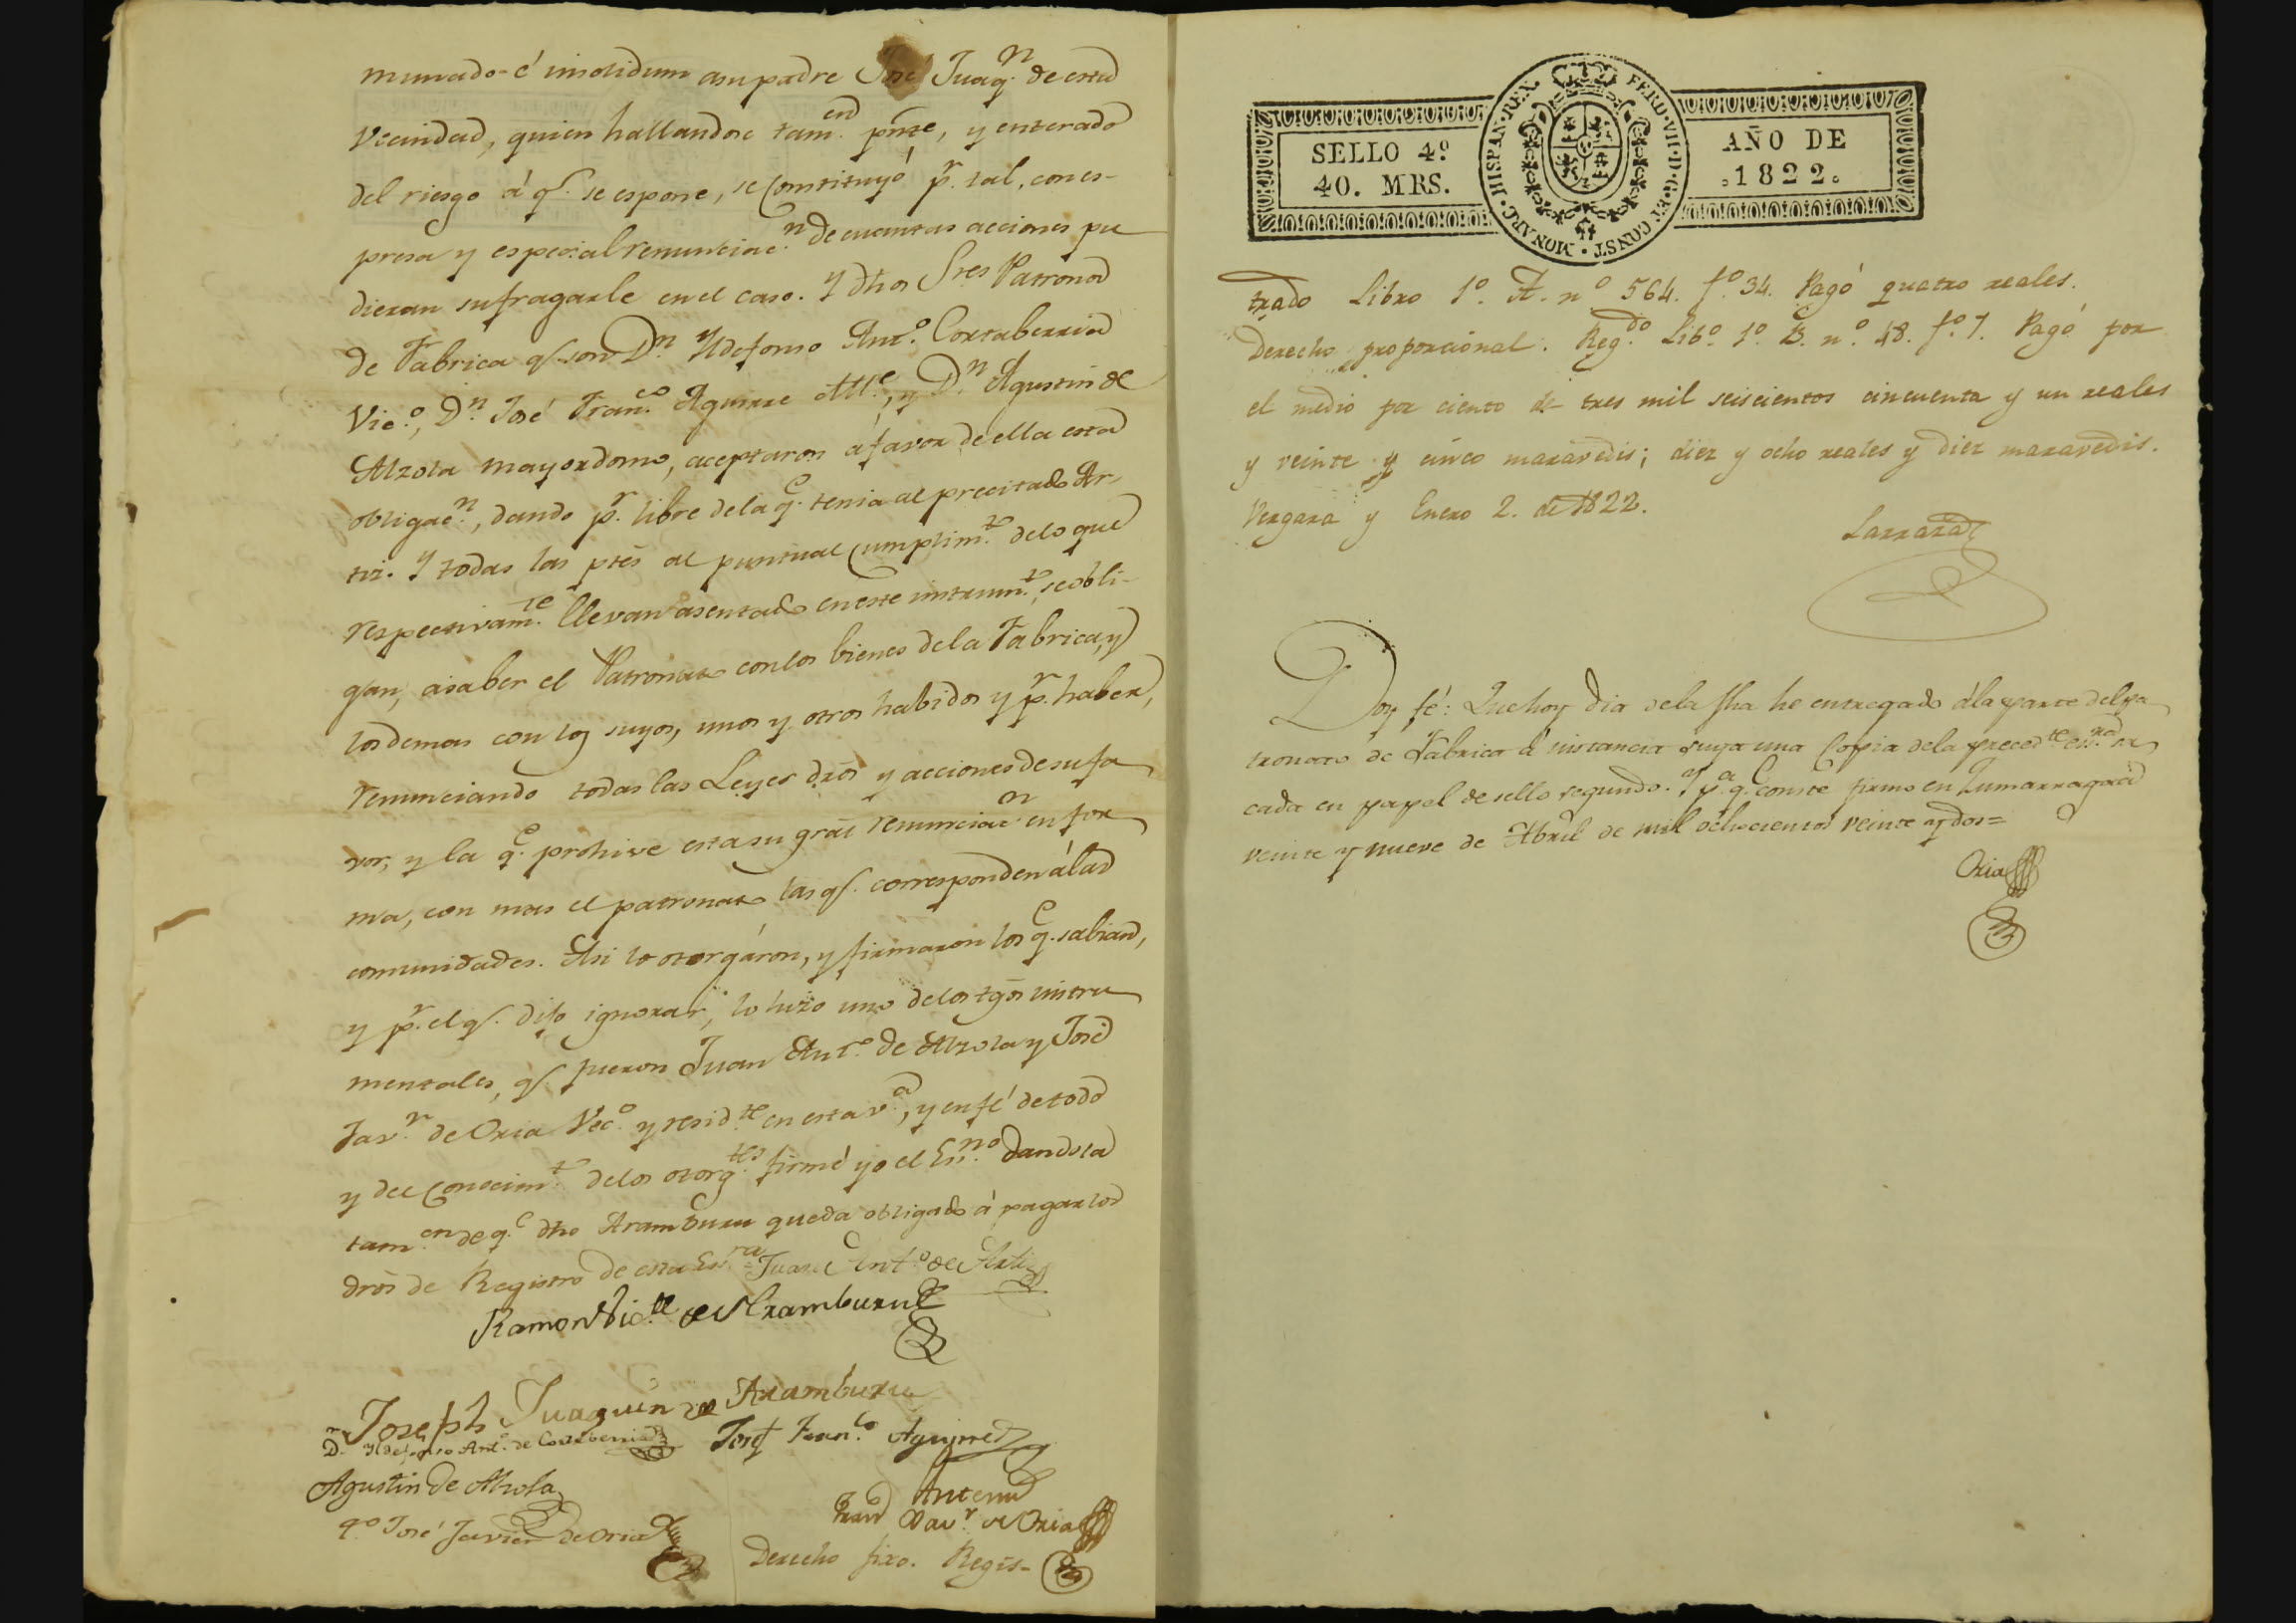 munado é insolidum asu padre José Juaqⁿ. de esta
Vecindad, quien hallandose tam.en pnte, y enterado
del riesgo á q.e se espone, se constituyó p.r tal, con es-
presa y especial renunciac.n de cuantas acciones pu
dieran sufragarle en el caso. Y dhos S.res Patronos
de Fabrica q.e son D.n Yldefonso Ant.o Cortaberria
Vic.o, D.n José Fran.co Aguirre Alle, y D.n Agustin de
Alzola mayordomo, aceptaron á favor de ella esta
obligac.n, dando p.r libre dela q.e tenia al precitado Ar-
tiz. Y todas las ptes al puntual cumplim.to delo que
respectivam.te llevan asentado en este instrum.to, se obli-
gan, asaber el Patronato con los bienes dela Fabrica, y
los demas con los suyos, unos y otros habidos y p.r haber,
renunciando todas las Leyes dros y acciones de su fa
vor, y la q.e prohive esta su gral renunciac.n en for
ma, con mas el patronato las q.e corresponden álas
comunidades. Asi lo otorgáron, y firmaron los q.e sabian,
y p.r el q.e dijo ignorar, lo hizo uno delos tgos instru
mentales, q.e fueron Juan Ant.o de Alzola y José
Jav.r de Oria Vec.o y resid.te en esta v.a, y en fé de todo
y del conocim.to delos otorg.tes firmé yo el Es.no dandola
tam.en de q.e dho Aramburu queda obligado á pagar los
dros de Registro de esta Es.ra = Juan Ant.o de Artiz
Ramon Vic.te de Aramburu
Joseph Juaquin de Aramburu
D.n Yldefonso Ant.o de Cortaberria Josef Fran.co Aguirre
Agustin de Alzola
Antemi
t.o José Javier de Oria Fran Xav.r de Oria
Derecho fixo. Regis-
SELLO 4º
40. MRS.
HISPAN·REX. FERD·VII·D·G·ET CONST·MONARC·
AÑO DE
1822.
trado Libro 1º. A. nº 564. fº. 34. Pagó quatro reales.
Derecho proporcional. Reg.do Libº. 1º. B. nº. 48. fº. 7. Pagó por
el medio por ciento de tres mil seiscientos cincuenta y un reales
y veinte y cinco maravedis; diez y ocho reales y diez maravedis.
Vergara y Enero 2. de 1822.
Larraza
Doy fé: Que hoy dia dela fha he entregado ála parte del pa
tronato de Fabrica á instancia suya una Copia dela preced.te es.ra sa
cada en papel de sello segundo. Y p.a q.e conste firmo en Zumarraga á
veinte y nueve de Abril de mil ochocientos veinte y dos =
Oria